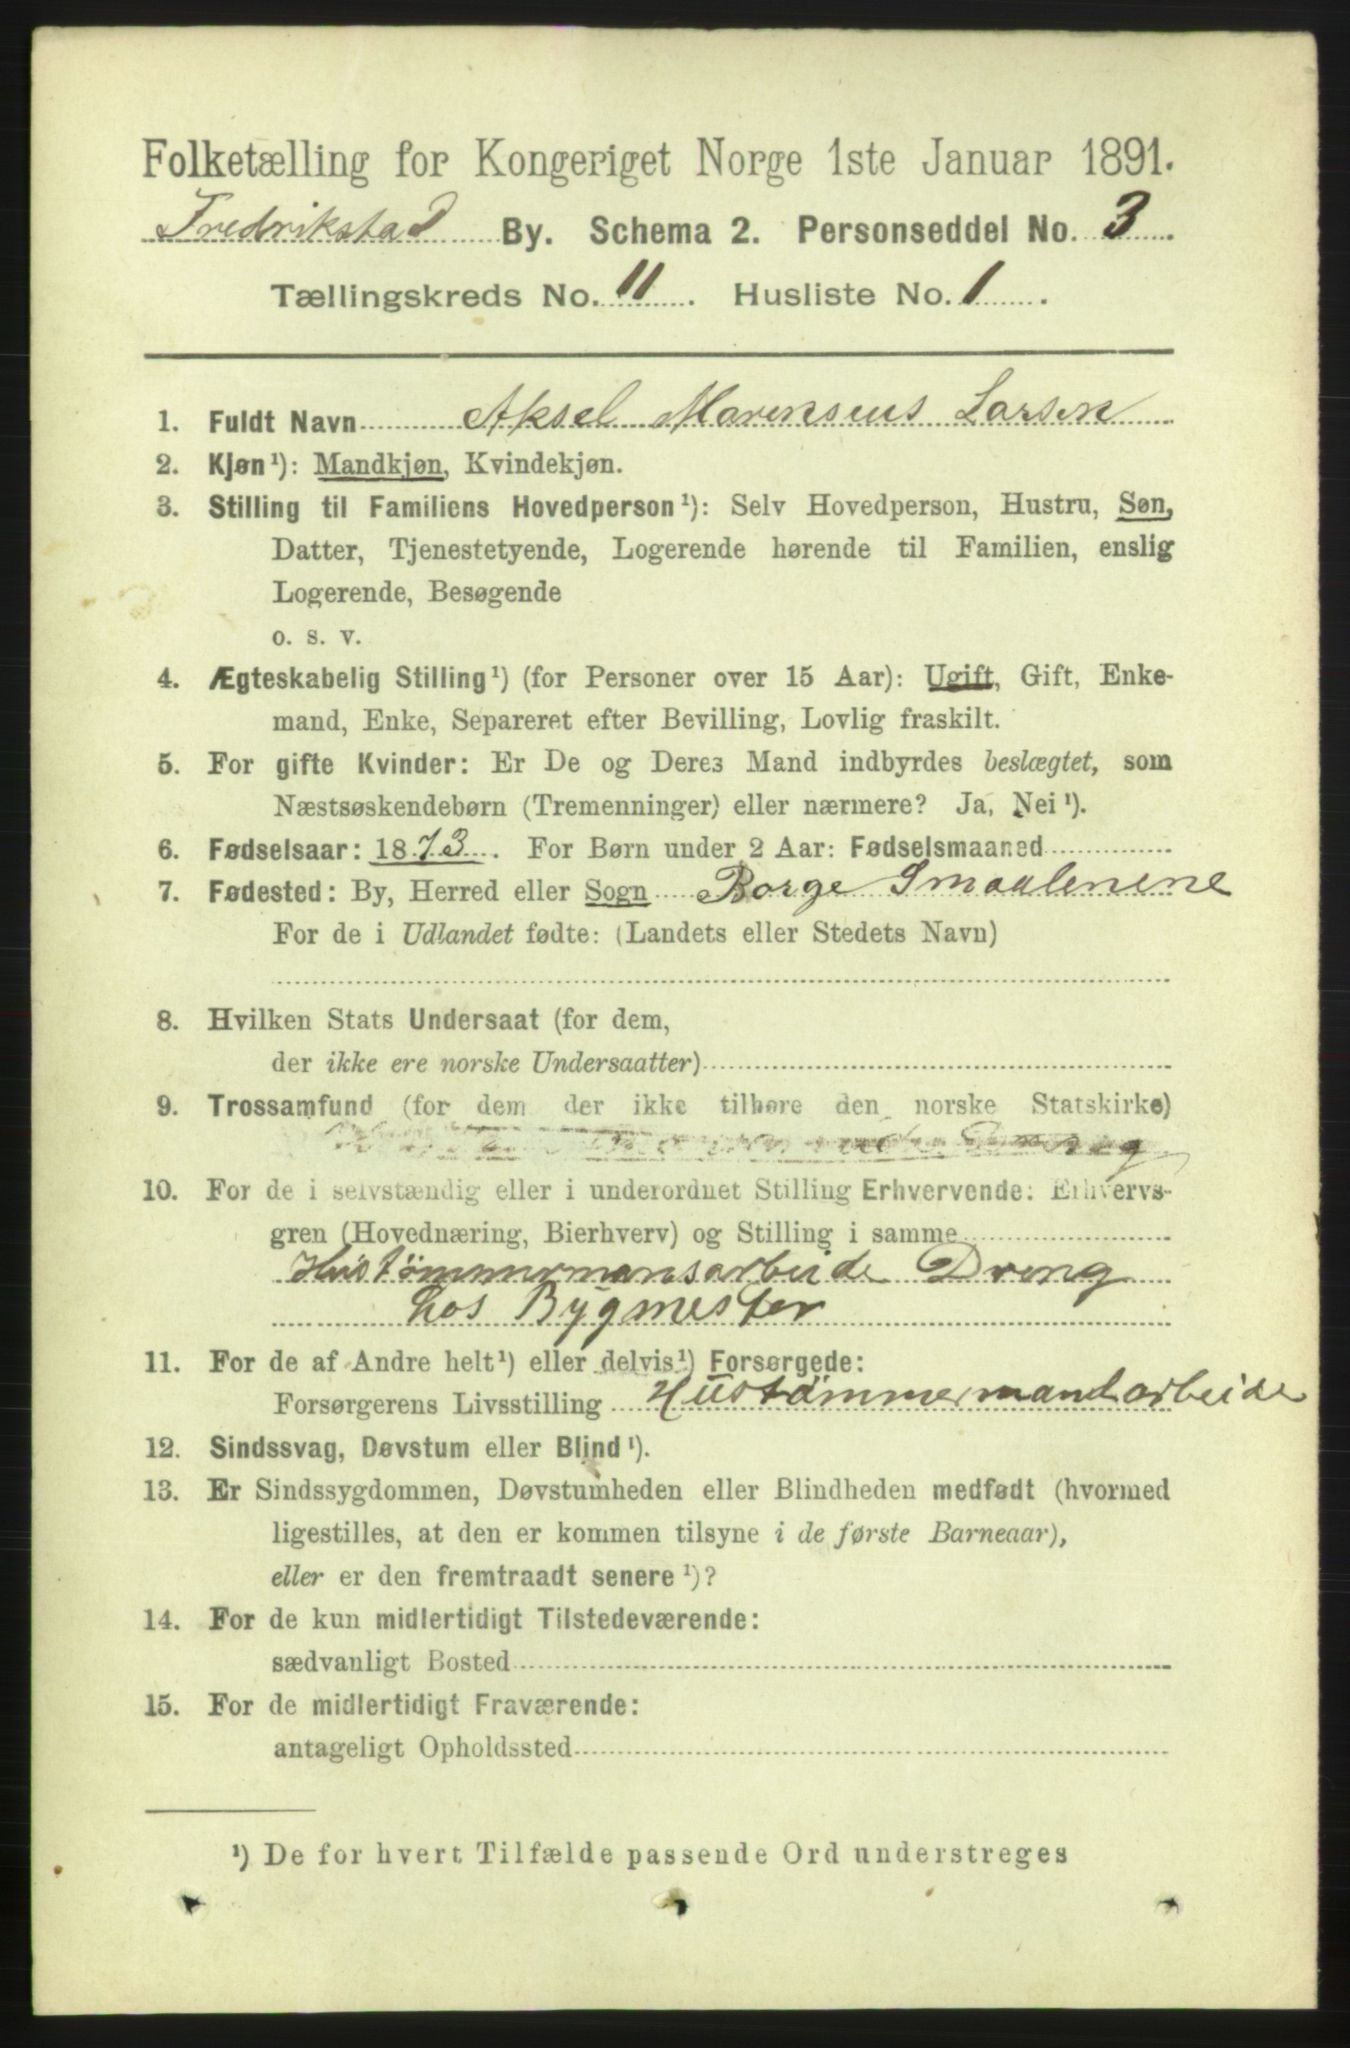 Folketælling for Kongeriget Norge 1ste Januar 1891.
Fredrikstad By. Schema 2. Personseddel No. 3.
Tællingskreds No. 11. Husliste No. 1.
1. Fuldt Navn Aksel Marensius Larsen
2. Kjøn¹): Mandkjøn, Kvindekjøn.
3. Stilling til Familiens Hovedperson¹): Selv Hovedperson, Hustru, Søn,
Datter, Tjenestetyende, Logerende hørende til Familien, enslig
Logerende, Besøgende
o. s. v.
4. Ægteskabelig Stilling¹) (for Personer over 15 Aar): Ugift, Gift, Enke-
mand, Enke, Separeret efter Bevilling, Lovlig fraskilt.
5. For gifte Kvinder: Er De og Deres Mand indbyrdes beslægtet, som
Næstsøskendebørn (Tremenninger) eller nærmere? Ja, Nei¹).
6. Fødselsaar: 1873. For Børn under 2 Aar: Fødselsmaaned
7. Fødested: By, Herred eller Sogn Borge Smaalenene
For de i Udlandet fødte: (Landets eller Stedets Navn)
8. Hvilken Stats Undersaat (for dem,
der ikke ere norske Undersaatter)
9. Trossamfund (for dem der ikke tilhøre den norske Statskirke)
10. For de i selvstændig eller i underordnet Stilling Erhvervende: Erhvervs-
gren (Hovednæring, Bierhverv) og Stilling i samme
Hustømmermansarbeide Dreng
hos Bygmester
11. For de af Andre helt¹) eller delvis¹) Forsørgede:
Forsørgerens Livsstilling Hustømmermandarbeide
12. Sindssvag, Døvstum eller Blind¹).
13. Er Sindssygdommen, Døvstumheden eller Blindheden medfødt (hvormed
ligestilles, at den er kommen tilsyne i de første Barneaar),
eller er den fremtraadt senere¹)?
14. For de kun midlertidigt Tilstedeværende:
sædvanligt Bosted
15. For de midlertidigt Fraværende:
antageligt Opholdssted
¹) De for hvert Tilfælde passende Ord understreges